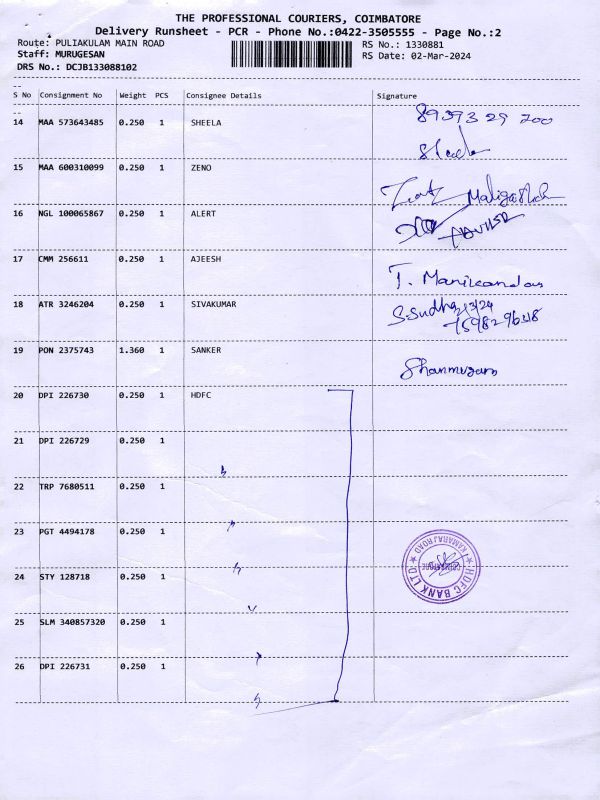 THE PROFESSIONAL COURIERS, COIMBATORE
Delivery Runsheet - PCR - Phone No.:0422-3505555 - Page No.:2
Route: PULIAKULAM MAIN ROAD RS No.: 1330881
Staff: MURUGESAN RS Date: 02-Mar-2024
DRS No.: DCJB133088102
S No Consignment No Weight PCS Consignee Details Signature
14 MAA 573643485 0.250 1 SHEELA
Sheela
15 MAA 600310099 0.250 1 ZENO
16 NGL 100065867 0.250 1 ALERT
17 CMM 256611 0.250 1 AJEESH T. Manikandan
18 ATR 3246204 0.250 1 SIVAKUMAR S.Sudha 2/3/24
19 PON 2375743 1.360 1 SANKER Shanmugam
20 DPI 226730 0.250 1 HDFC
21 DPI 226729 0.250 1
22 TRP 7680511 0.250 1
23 PGT 4494178 0.250 1
24 STY 128718 0.250 1
25 SLM 340857320 0.250 1
26 DPI 226731 0.250 1
HDFC BANK LTD
KAMARAJ ROAD